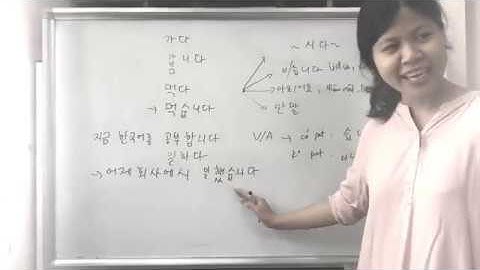 가다
갑니다
먹다
→ 먹습니다
지금 한국어를 공부합니다
일하다
→ 어제 회사에서 일했습니다
~시다~
ㅂ/습니다
아/어요,
반말
V/A →